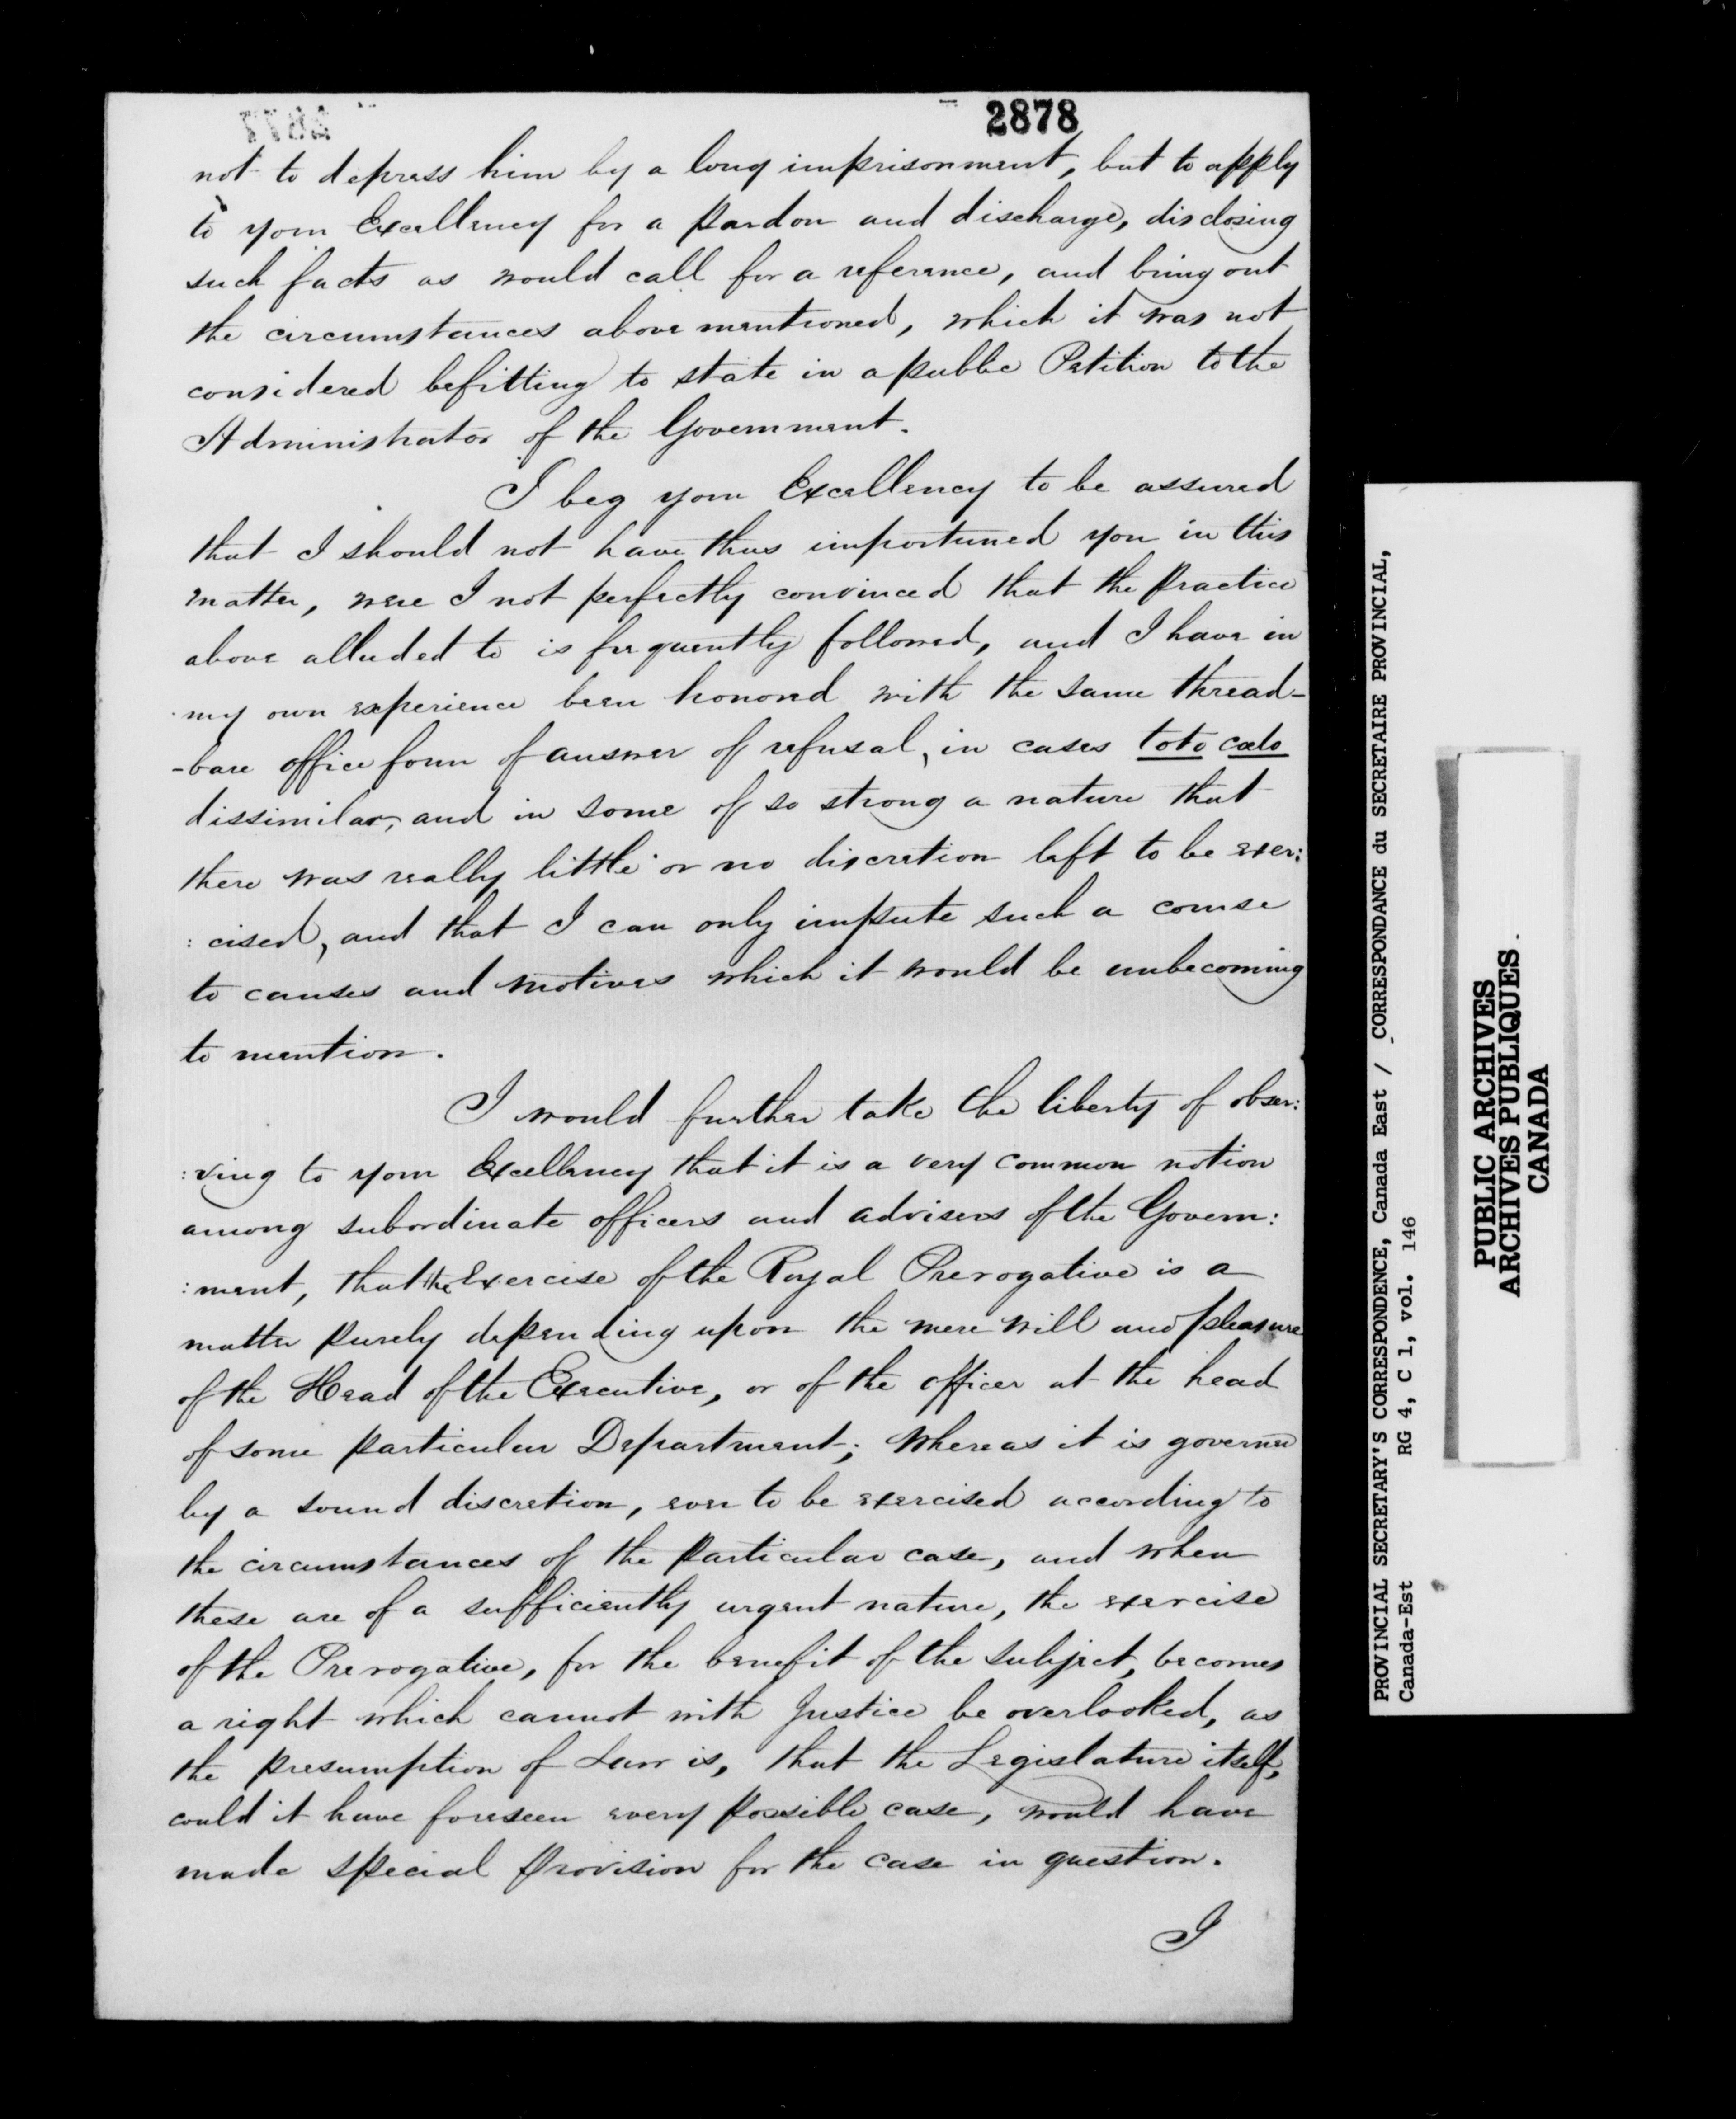 2878
not to depress him by a long imprisonment, but to apply
to your Excellency for a pardon and discharge, disclosing
such facts as would call for a reference, and bring out
the circumstances above mentioned, which it was not
considered befitting to state in a public Petition to the
Administrator of the Government.
I beg your Excellency to be assured
that I should not have thus importuned you in this
matter, were I not perfectly convinced that the practice
above alluded to is frequently followed, and I have in
my own experience been honored with the same thread-
-bare office form of answer of refusal, in cases toto cælo
dissimilar, and in some of so strong a nature that
there was really little or no discretion left to be exer:
:cised, and that I can only impute such a course
to causes and motives which it would be unbecoming
to mention.
I would further take the liberty of obser:
:ving to your Excellency that it is a very common notion
among subordinate officers and advisers of the Govern:
:ment, that the Exercise of the Royal Prerogative is a
matter purely depending upon the mere will and pleasure
of the Head of the Executive, or of the officer at the head
of some particular Department; whereas it is governed
by a sound discretion, ever to be exercised according to
the circumstances of the particular case, and when
these are of a sufficiently urgent nature, the exercise
of the Prerogative, for the benefit of the subject, becomes
a right which cannot with Justice be overlooked, as
the presumption of Law is, that the Legislature itself,
could it have foreseen every possible case, would have
made special provision for the case in question.
I
PROVINCIAL SECRETARY'S CORRESPONDENCE, Canada East / CORRESPONDANCE du SECRETAIRE PROVINCIAL,
Canada-Est RG 4, C 1, vol. 146
PUBLIC ARCHIVES
ARCHIVES PUBLIQUES
CANADA